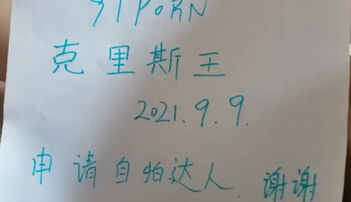 91PORN
克里斯王
2021.9.9.
申请自拍达人.谢谢